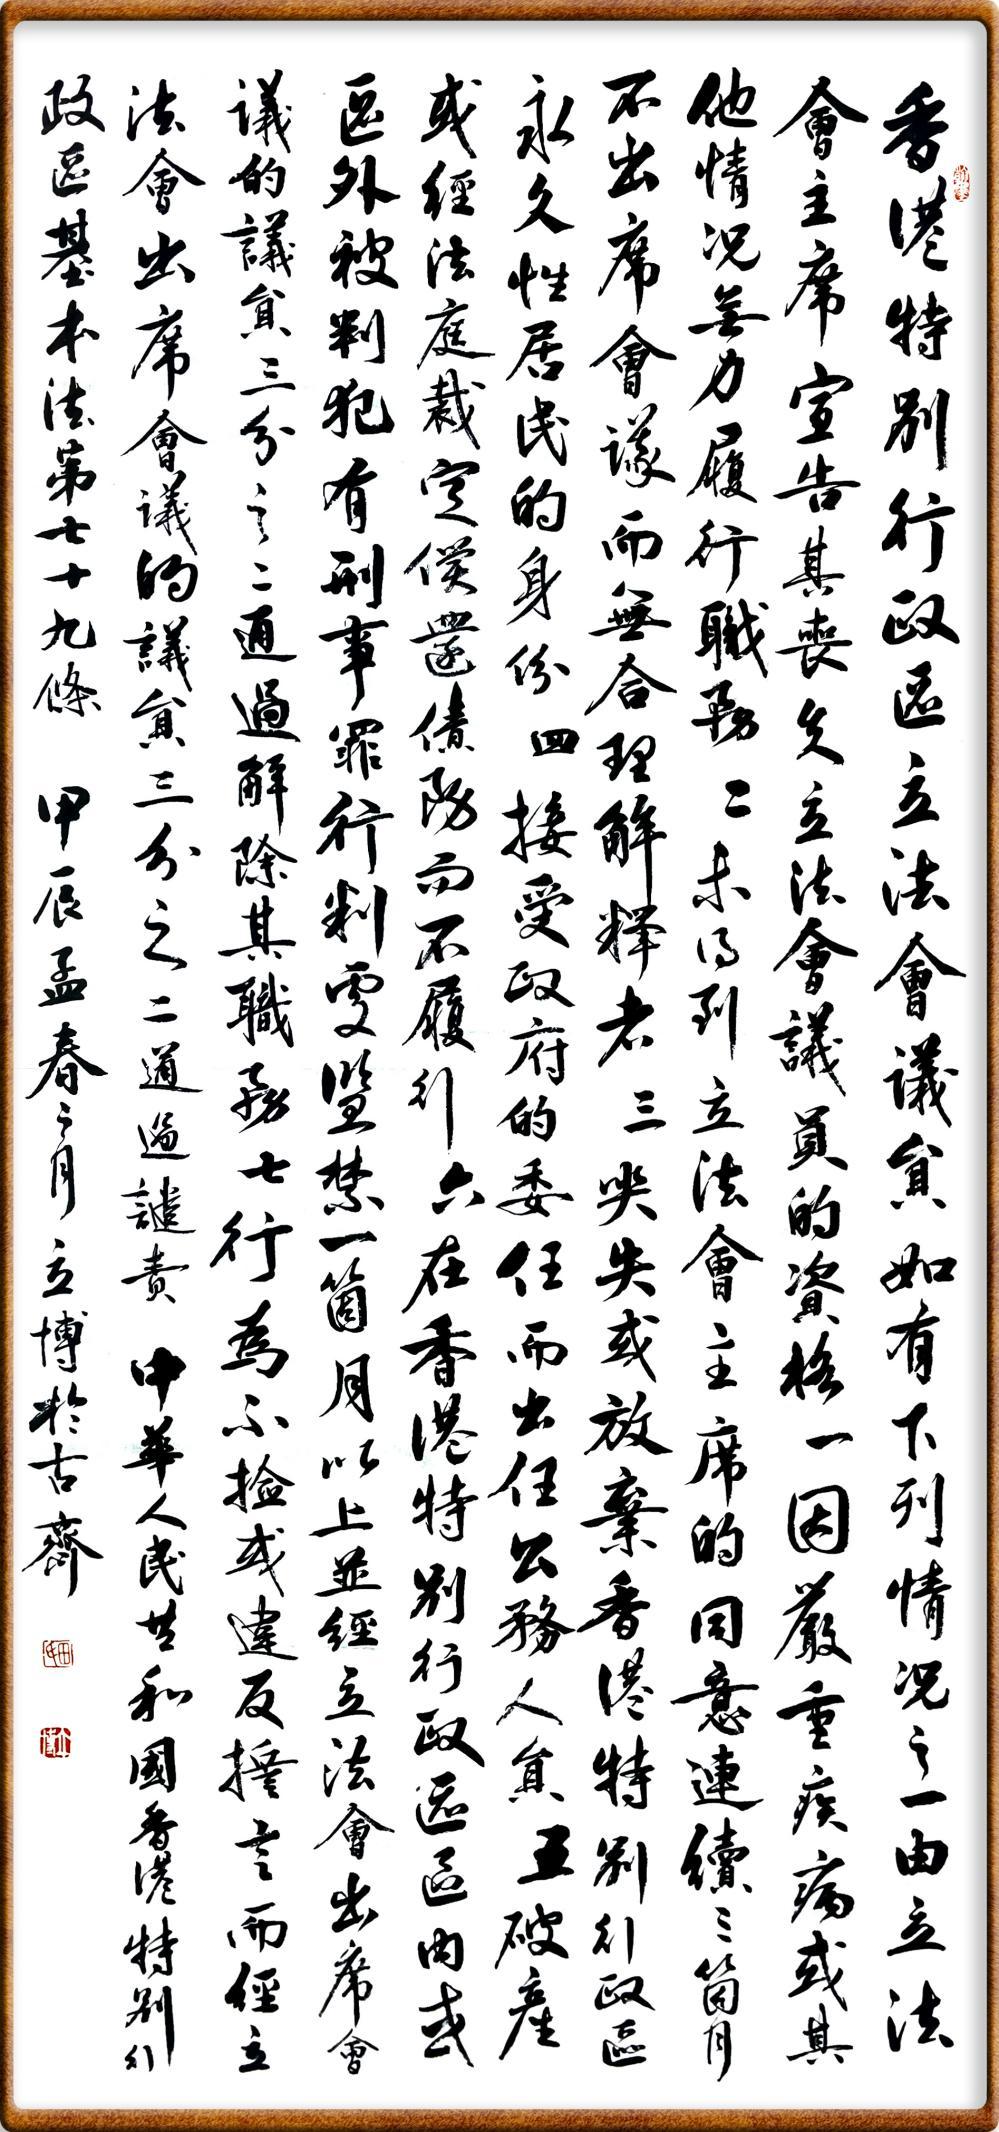 香港特別行政區立法會議員如有下列情況之一由立法
會主席宣告其喪失立法會議員的資格一因嚴重疾病或其
他情況無力履行職務二未得到立法會主席的同意連續三箇月
不出席會議而無合理解釋者三喪失或放棄香港特別行政區
永久性居民的身份四接受政府的委任而出任公務人員五破產
或經法庭裁定償還債務而不履行六在香港特別行政區區內或
區外被判犯有刑事罪行判處監禁一箇月以上並經立法會出席會
議的議員三分之二通過解除其職務七行為不撿或違反誓言而經立
法會出席會議的議員三分之二通過譴責 中華人民共和國香港特別行
政區基本法第七十九條 甲辰孟春之月立博於古齋